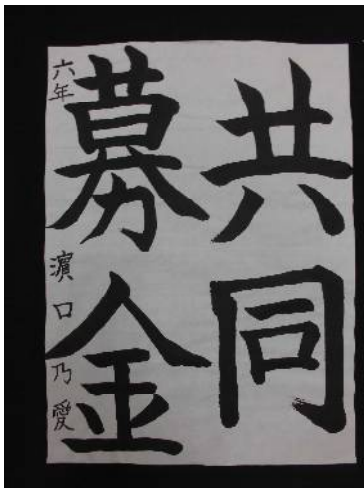 共同
募金
六年 濵口乃愛